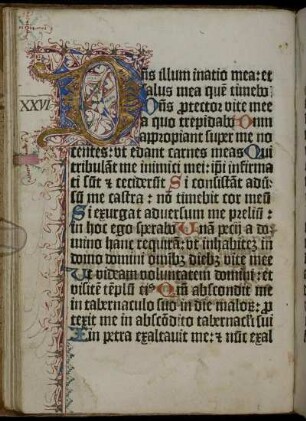 XXVI
Dñs illuminatio mea: et
salus mea quē timebo
Dñs ꝓtector vite mee
a quo trepidabo Dum
appropiant super me no
centes: vt edant carnes meas Qui
tribulāt me inimici mei: ipi infirma
ti sūt ⁊ ceciderūt Si consistāt adū
sū me castra: nō timebit cor meū
Si exurgat adversum me preliū:
in hoc ego sperabo Unā pecij a do
mino hanc requirā: vt inhabitē in
domo domini omībꝫ diebꝫ vite mee
Ut videam voluntatem domini: et
visitē tēplū eiꝰ Qm̄ abscondit me
in tabernaculo suo in die maloꝝ: ꝓ
texit me in abscōdito tabernacli sui
In petra exaltavit me: ⁊ nūc exal